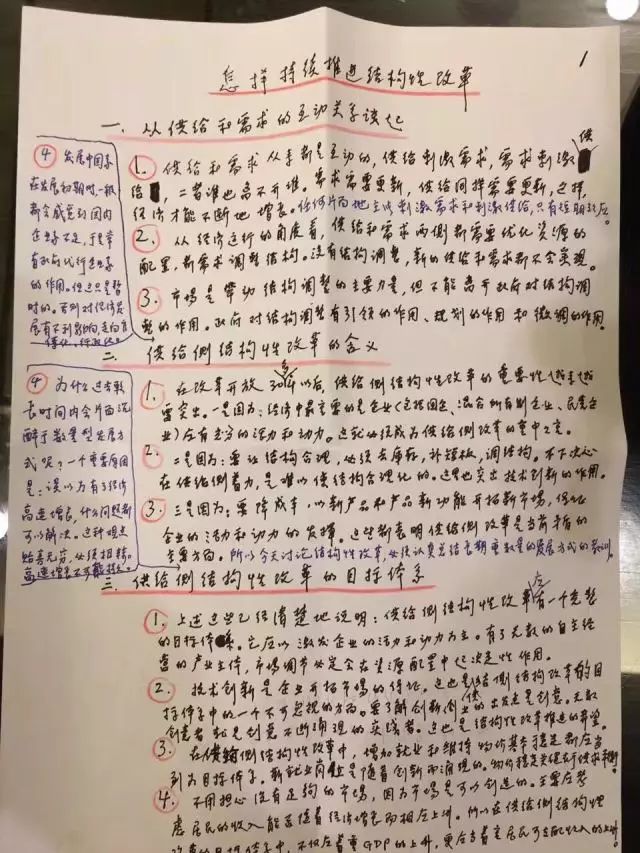 1
怎样持续推进结构性改革
一、从供给和需求的互动关系谈起
1. 供给和需求从来都是互动的,供给刺激需求,需求刺激供
给,二者谁也离不开谁。需求需要更新,供给同样需要更新,这样,
经济才能不断地增长。任何片面地主张刺激需求和刺激供给,只有短期效应。
2. 从经济运行的角度看,供给和需求两侧都需要优化资源的
配置,都需求调整结构。没有结构调整,新的供给和需求都不会实现。
3. 市场是带动结构调整的主要力量,但不能离开政府对结构调
整的作用。政府对结构调整有引领的作用、规划的作用和微调的作用。
④ 发展中国家
在发展初期时,一般
都会感到国内
企业家不足,于是常
有政府代行企业家
的作用。但这只是暂
时的。否则对经济发
展有不利影响,走向官
僚化、行政化。
二、供给侧结构性改革的含义
1. 在改革开放30多年以后,供给侧结构性改革的重要性越来越
要突出。一是因为:经济中最主要的是企业(包括国企、混合所有制企业、民营企
业)应有充分的活力和动力。这就必须成为供给侧改革的重中之重。
2. 二是因为:要让结构合理,必须去库存,补短板,调结构。不下决心
在供给侧着力,是难以使结构合理化的。这里也突出技术创新的作用。
3. 三是因为:要降成本,以新产品和产品新功能开拓新市场,促让
企业的活力和动力的发挥。这些都表明供给侧改革是当前才有的
主要方面。所以今天讨论结构性改革,必须认真总结长期重数量的发展方式的教训。
④ 为什么过去较
长时间内会片面沉
醉于数量型发展方
式呢?一个重要原因
是:误以为有了经济
高速增长,什么问题都
可以解决。这种观点
贻害无穷,必须扭转。
高速增长不可能持久。
三、供给侧结构性改革的目标体系
1. 上述这些已经清楚地说明:供给侧结构性改革应有一个完整
的目标体系。它应以激发企业的活力和动力为主。有了无数的自主经
营的产业主体,市场调节必定会在资源配置中起决定性作用。
2. 技术创新是企业开拓市场的保证。这也是供给侧结构改革的目
标体系中的一个不可忽视的方面。要了解创新创业的出发点是创意。无数
创意者都是创意不断涌现的实践者。这也是结构性改革推进的希望。
3. 在供给侧结构性改革中,增加就业和维持物价基本稳定都应当
列为目标体系。新就业岗位是随着创新而涌现的。物价稳定关键在于供求平衡
4. 不用担心没有足够的市场,因为市场是可以创造的。主要应考
虑居民的收入能否随着经济增长而相应上升。所以在供给侧结构性
改革的目标体系中,不仅应着重GDP的上升,更应当看重居民可支配收入的上升